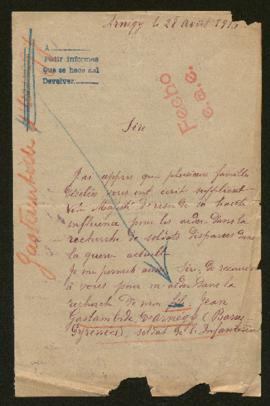 Arnégy le 28 août 191
A
Pedir informes
Que se hace así
Devolver
Fecho
Gastambide
Sire
J'ai appris que plusieurs famille
vous ont écrit suppliant
Votre Majesté d'user de sa haute
influence pour les aider dans la
recherche de soldats disparus dans
la guerre actuelle
Je me permets aussi Sire, de recourir
à vous pour m'aider dans la
recherche de mon fils, Jean
Gastambide d'Arnégy (Basses
Pyrénées), soldat de l'Infanterie